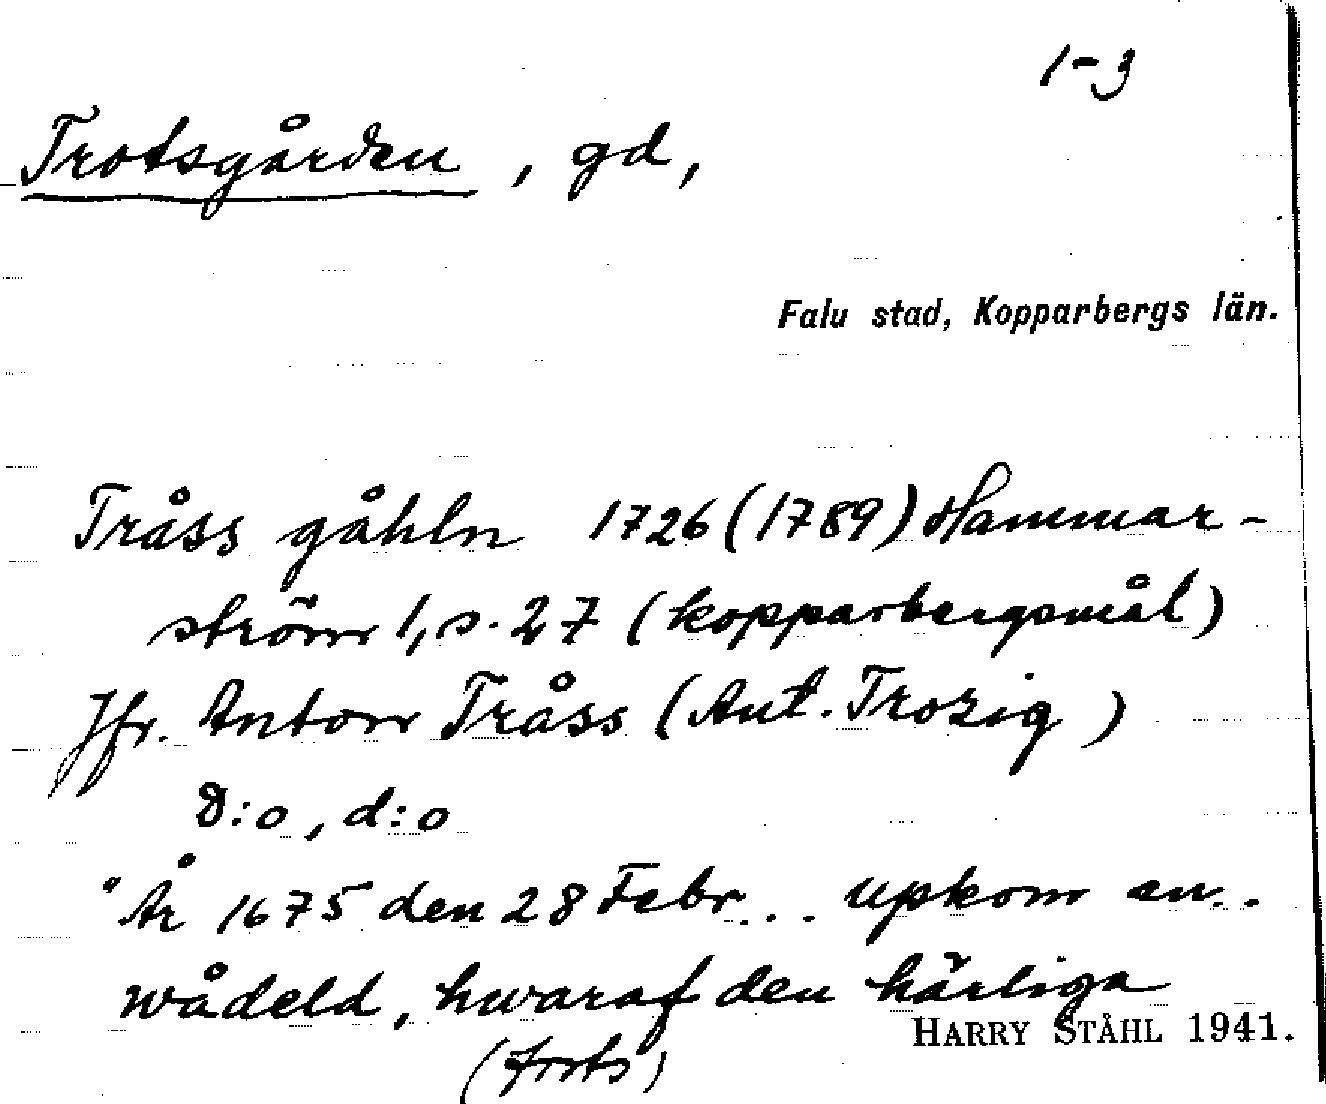 1-3
Trotsgården, gd,
Falu stad, Kopparbergs län.
Tråss gåhln 1726 (1789) Hammar-
ström 1, s. 27 (kopparbergsmål)
Jfr. Anton Tråss (Ant. Trozig)
d:o, d:o
"År 1675 den 28 Febr... upkom en..
wådeld, hwaraf den härliga
HARRY STÅHL 1941.
(forts)